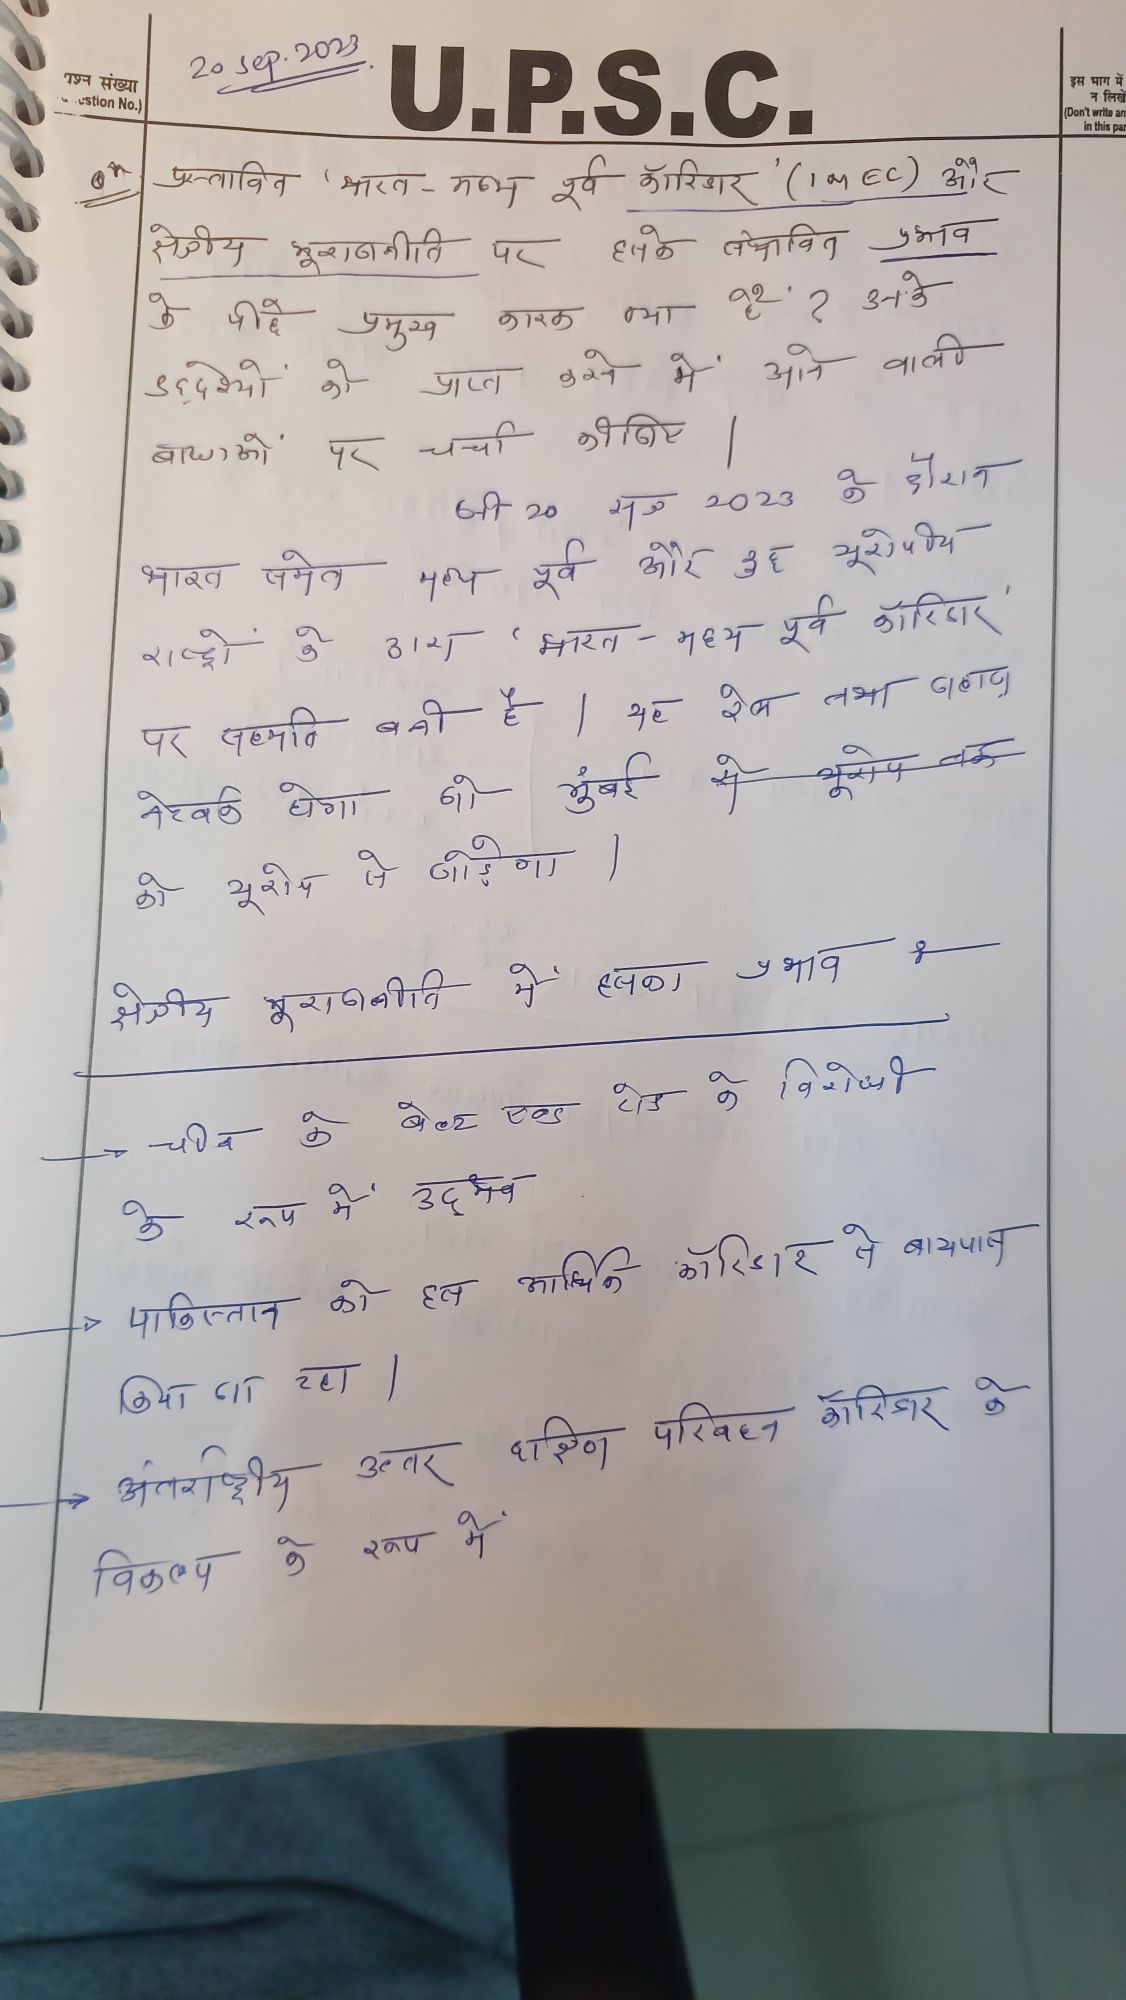 प्रश्न संख्या
(Question No.)
20 Sep. 2023
U.P.S.C.
इस भाग में
न लिखें
(Don't write an
in this par
प्रस्तावित 'भारत - मध्य पूर्व कॉरिडार' (IMEC) और
क्षेत्रीय भूराजनीति पर इसके संभावित प्रभाव
के पीछे प्रमुख कारक क्या है ? उनके
उद्देश्यों को प्राप्त करने में आने वाली
बाधाओं पर चर्चा कीजिए |
जी 20 सत्र 2023 के दौरान
भारत समेत मध्य पूर्व और कुछ यूरोपीय
राष्ट्रों के द्वारा 'भारत - मध्य पूर्व कॉरिडार'
पर सहमति बनी है | यह रेल तथा जहाज
नेटवर्क होगा जो मुंबई से यूरोप तक
को यूरोप से जोड़ेगा |
क्षेत्रीय भूराजनीति में इसका प्रभाव :-
→ चीन के बेल्ट एण्ड रोड के विरोधी
के रूप में उद्भव
→ पाकिस्तान को इस आर्थिक कॉरिडार से बायपास
किया जा रहा |
→ अंतर्राष्ट्रीय उत्तर दक्षिण परिवहन कॉरिडार के
विकल्प के रूप में